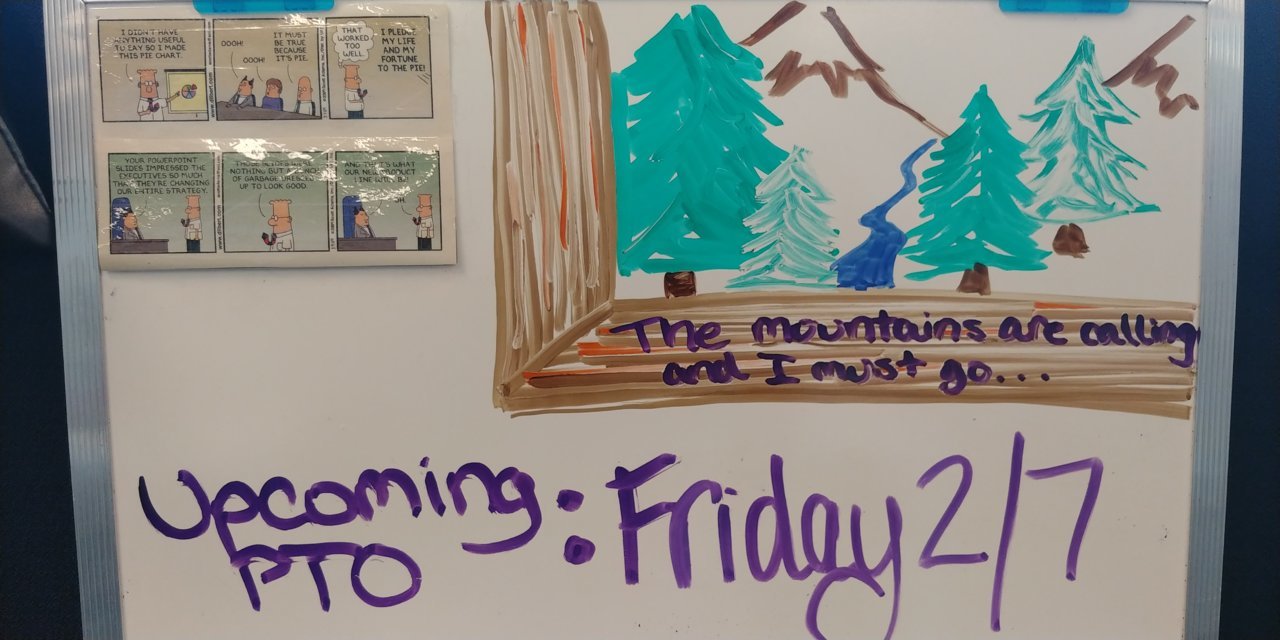 I DIDN'T HAVE
ANYTHING USEFUL
TO SAY SO I MADE
THIS PIE CHART.
OOOH!
OOOH!
IT MUST
BE TRUE
BECAUSE
IT'S PIE.
THAT
WORKED
TOO
WELL.
I PLEDGE
MY LIFE
AND MY
FORTUNE
TO THE PIE!
www.dilbert.com
YOUR POWERPOINT
SLIDES IMPRESSED THE
EXECUTIVES SO MUCH
THAT THEY'RE CHANGING
OUR ENTIRE STRATEGY.
THOSE SLIDES WERE
NOTHING BUT A
OF GARBAGE DRESSED
UP TO LOOK GOOD.
AND THAT'S WHAT
OUR NEW PRODUCT
LINE WILL
OH.
www.dilbert.com
The mountains are calling
and I must go...
Upcoming : Friday 2/7
PTO